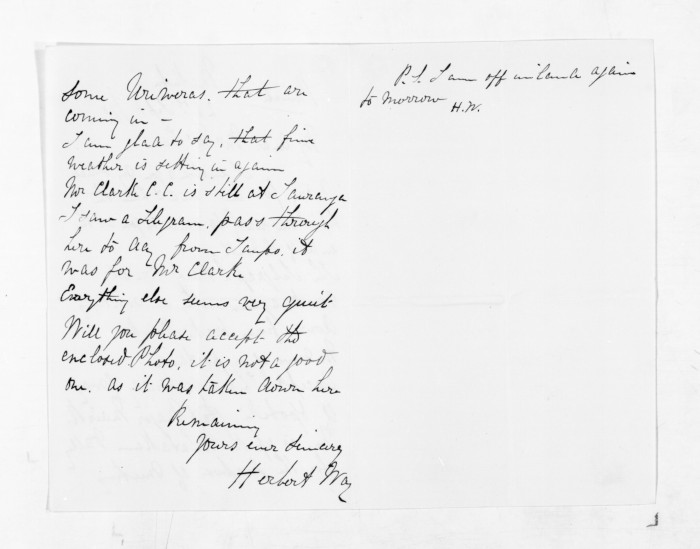 Some Uriweras. that are
coming in -
I am glad to say, that fine
weather is setting in again
Mr Clarke C.C. is still at Tauranga
I saw a Telegram, pass through
here to day from Taupo. it
was for Mr Clarke
Everything else seems very quiet
Will you please accept the
enclosed Photo, it is not a good
one. as it was taken down here
Remaining
Yours ever sincerely
Herbert Way
P.S. I am off inland again
to morrow
H.W.